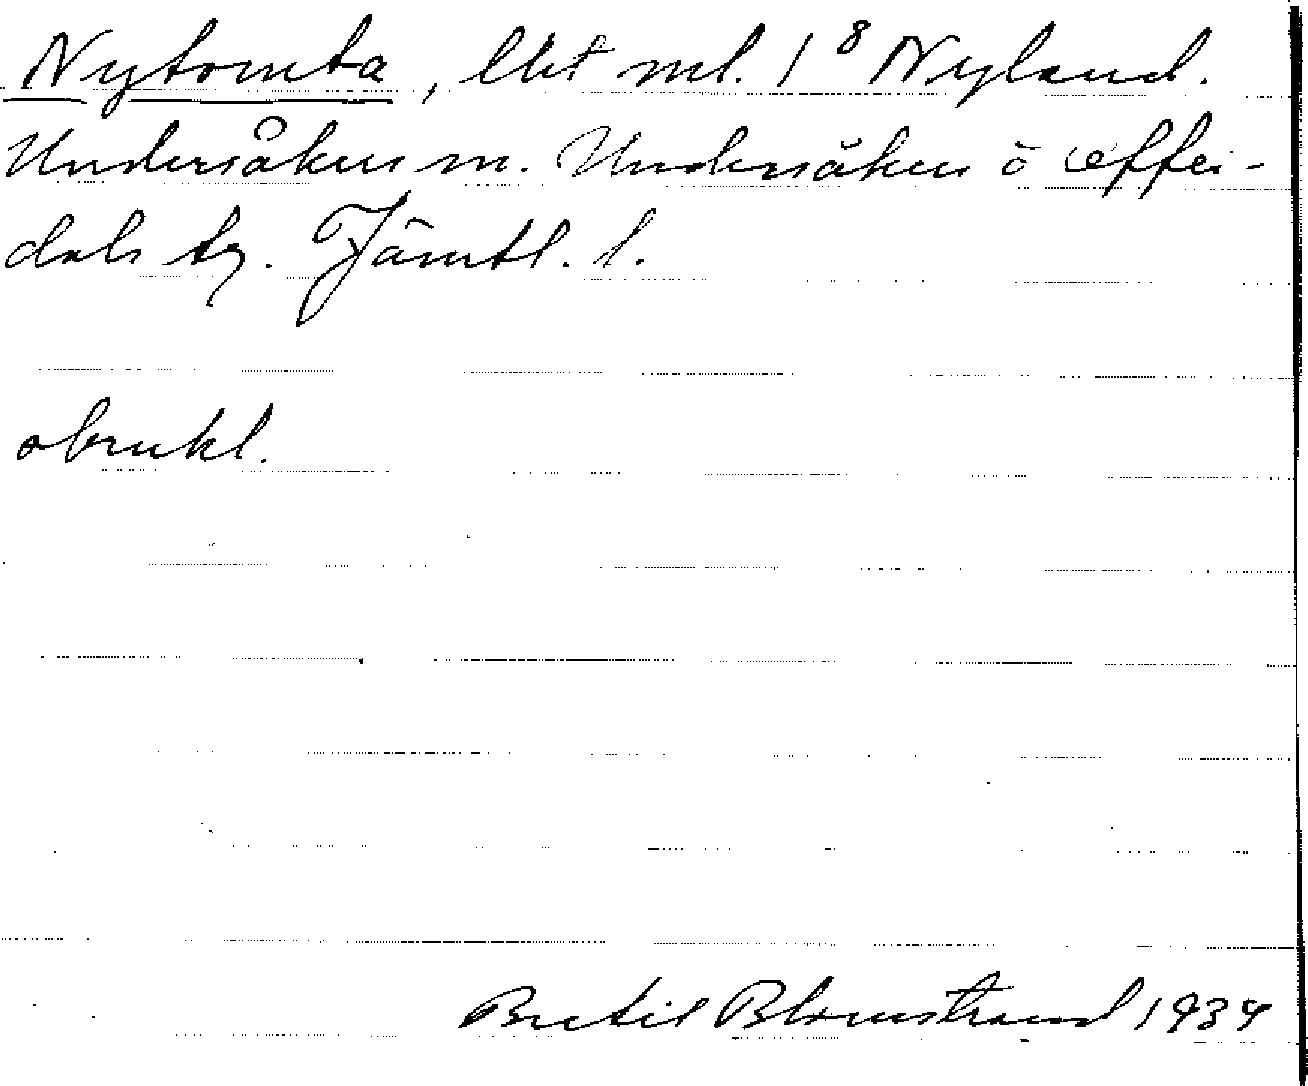 Nytomta, lht ml. 1⁸ Nyland.
Undersåkers sn. Undersåkers o Offer-
dals tg. Jämtl. l.
obrukl.
Bertil Blomstrand 1934